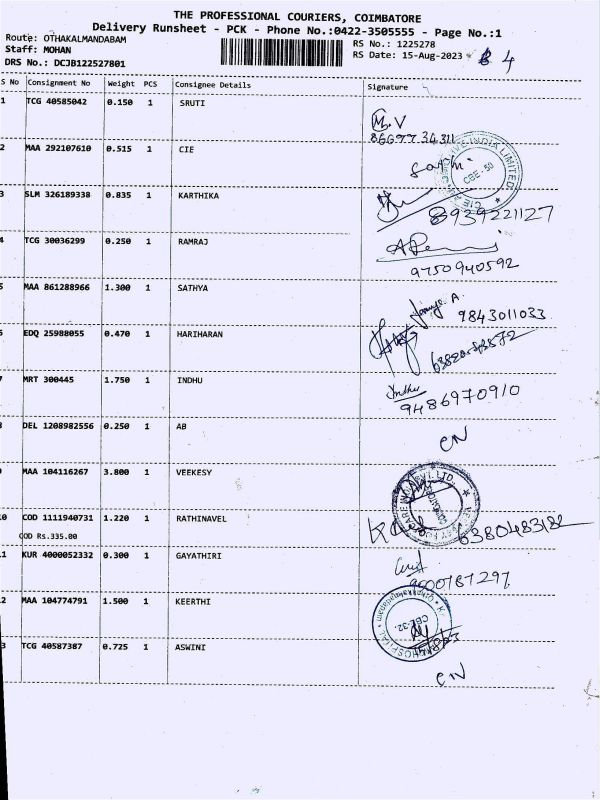 THE PROFESSIONAL COURIERS, COIMBATORE
Delivery Runsheet - PCK - Phone No.:0422-3505555 - Page No.:1
Route: OTHAKALMANDABAM
Staff: MOHAN
DRS No.: DCJB122527801
RS No.: 1225278
RS Date: 15-Aug-2023
4
S No Consignment No Weight PCS Consignee Details Signature
1 TCG 40585042 0.150 1 SRUTI
M.V
2 MAA 292107610 0.515 1 CIE
CBE-50
3 SLM 326189338 0.835 1 KARTHIKA
8939221127
4 TCG 30036299 0.250 1 RAMRAJ
9750940592
5 MAA 861288966 1.300 1 SATHYA
9843011033
6 EDQ 25988055 0.470 1 HARIHARAN
7 MRT 300445 1.750 1 INDHU
Indhu
9486970910
8 DEL 1208982556 0.250 1 AB
CN
9 MAA 104116267 3.800 1 VEEKESY
10 COD 1111940731 1.220 1 RATHINAVEL
COD Rs.335.00
6380483182
11 KUR 4000052332 0.300 1 GAYATHIRI
9600787297
12 MAA 104774791 1.500 1 KEERTHI
HOSPITAL
CBE-32.
13 TCG 40587387 0.725 1 ASWINI
CN